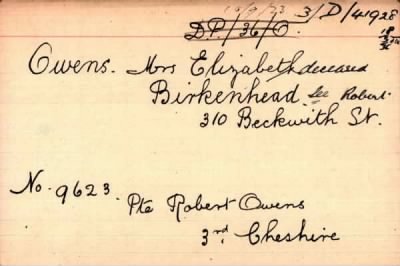 10/9/33 3/D/41928
DP/36/O.
Owens. Mrs Elizabeth deceased
Birkenhead. See Robert.
310 Beckwith St.
No. 9623.
Pte Robert Owens
3rd Cheshire